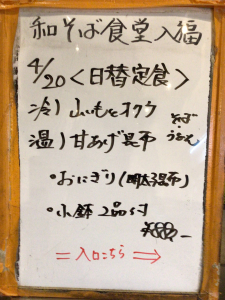 和そば食堂入福
4/20<日替定食>
冷) 山いもとオクラ
温) 甘あげ昆布
そば
うどん
・おにぎり(明太昆布)
・小鉢2品付
¥880-
=入口こちら⇒